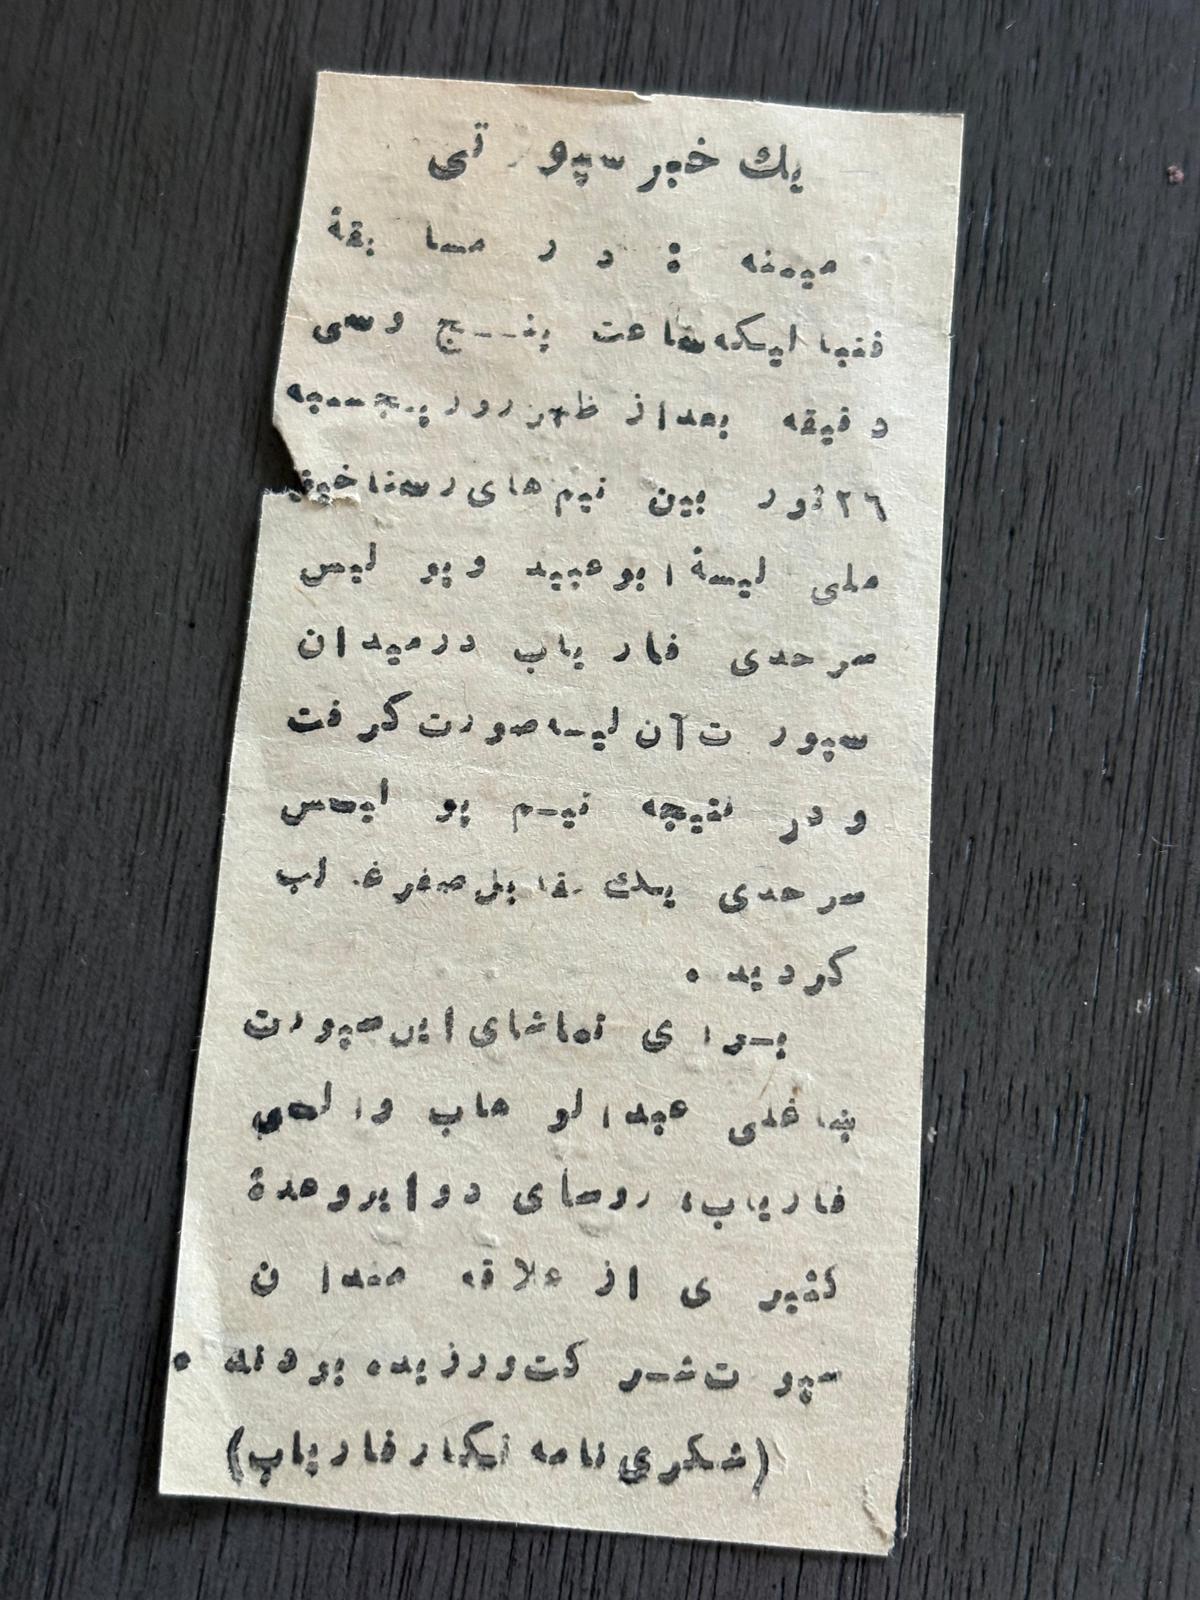 یك خبر سپورتی
میمنه : در مسابقهٔ
فتبالیکه ساعت پنج وسی
دقیقه بعداز ظهر روز پنجشنبه
۲۶ ثور بین تیم های
ملی لیسهٔ ابوعبید و پولیس
سرحدی فاریاب درمیدان
سپورت آن لیسه صورت گرفت
و در نتیجه تیم پولیس
سرحدی یك مقابل صفر غالب
گردید .
برای تماشای این سپورت
ښاغلی عبدالوهاب والی
فاریاب، روسای دوایر وعدهٔ
کثیری از علاقه مندان
سپورت شرکت ورزیده بودند .
(شکری نامه نگار فاریاب)